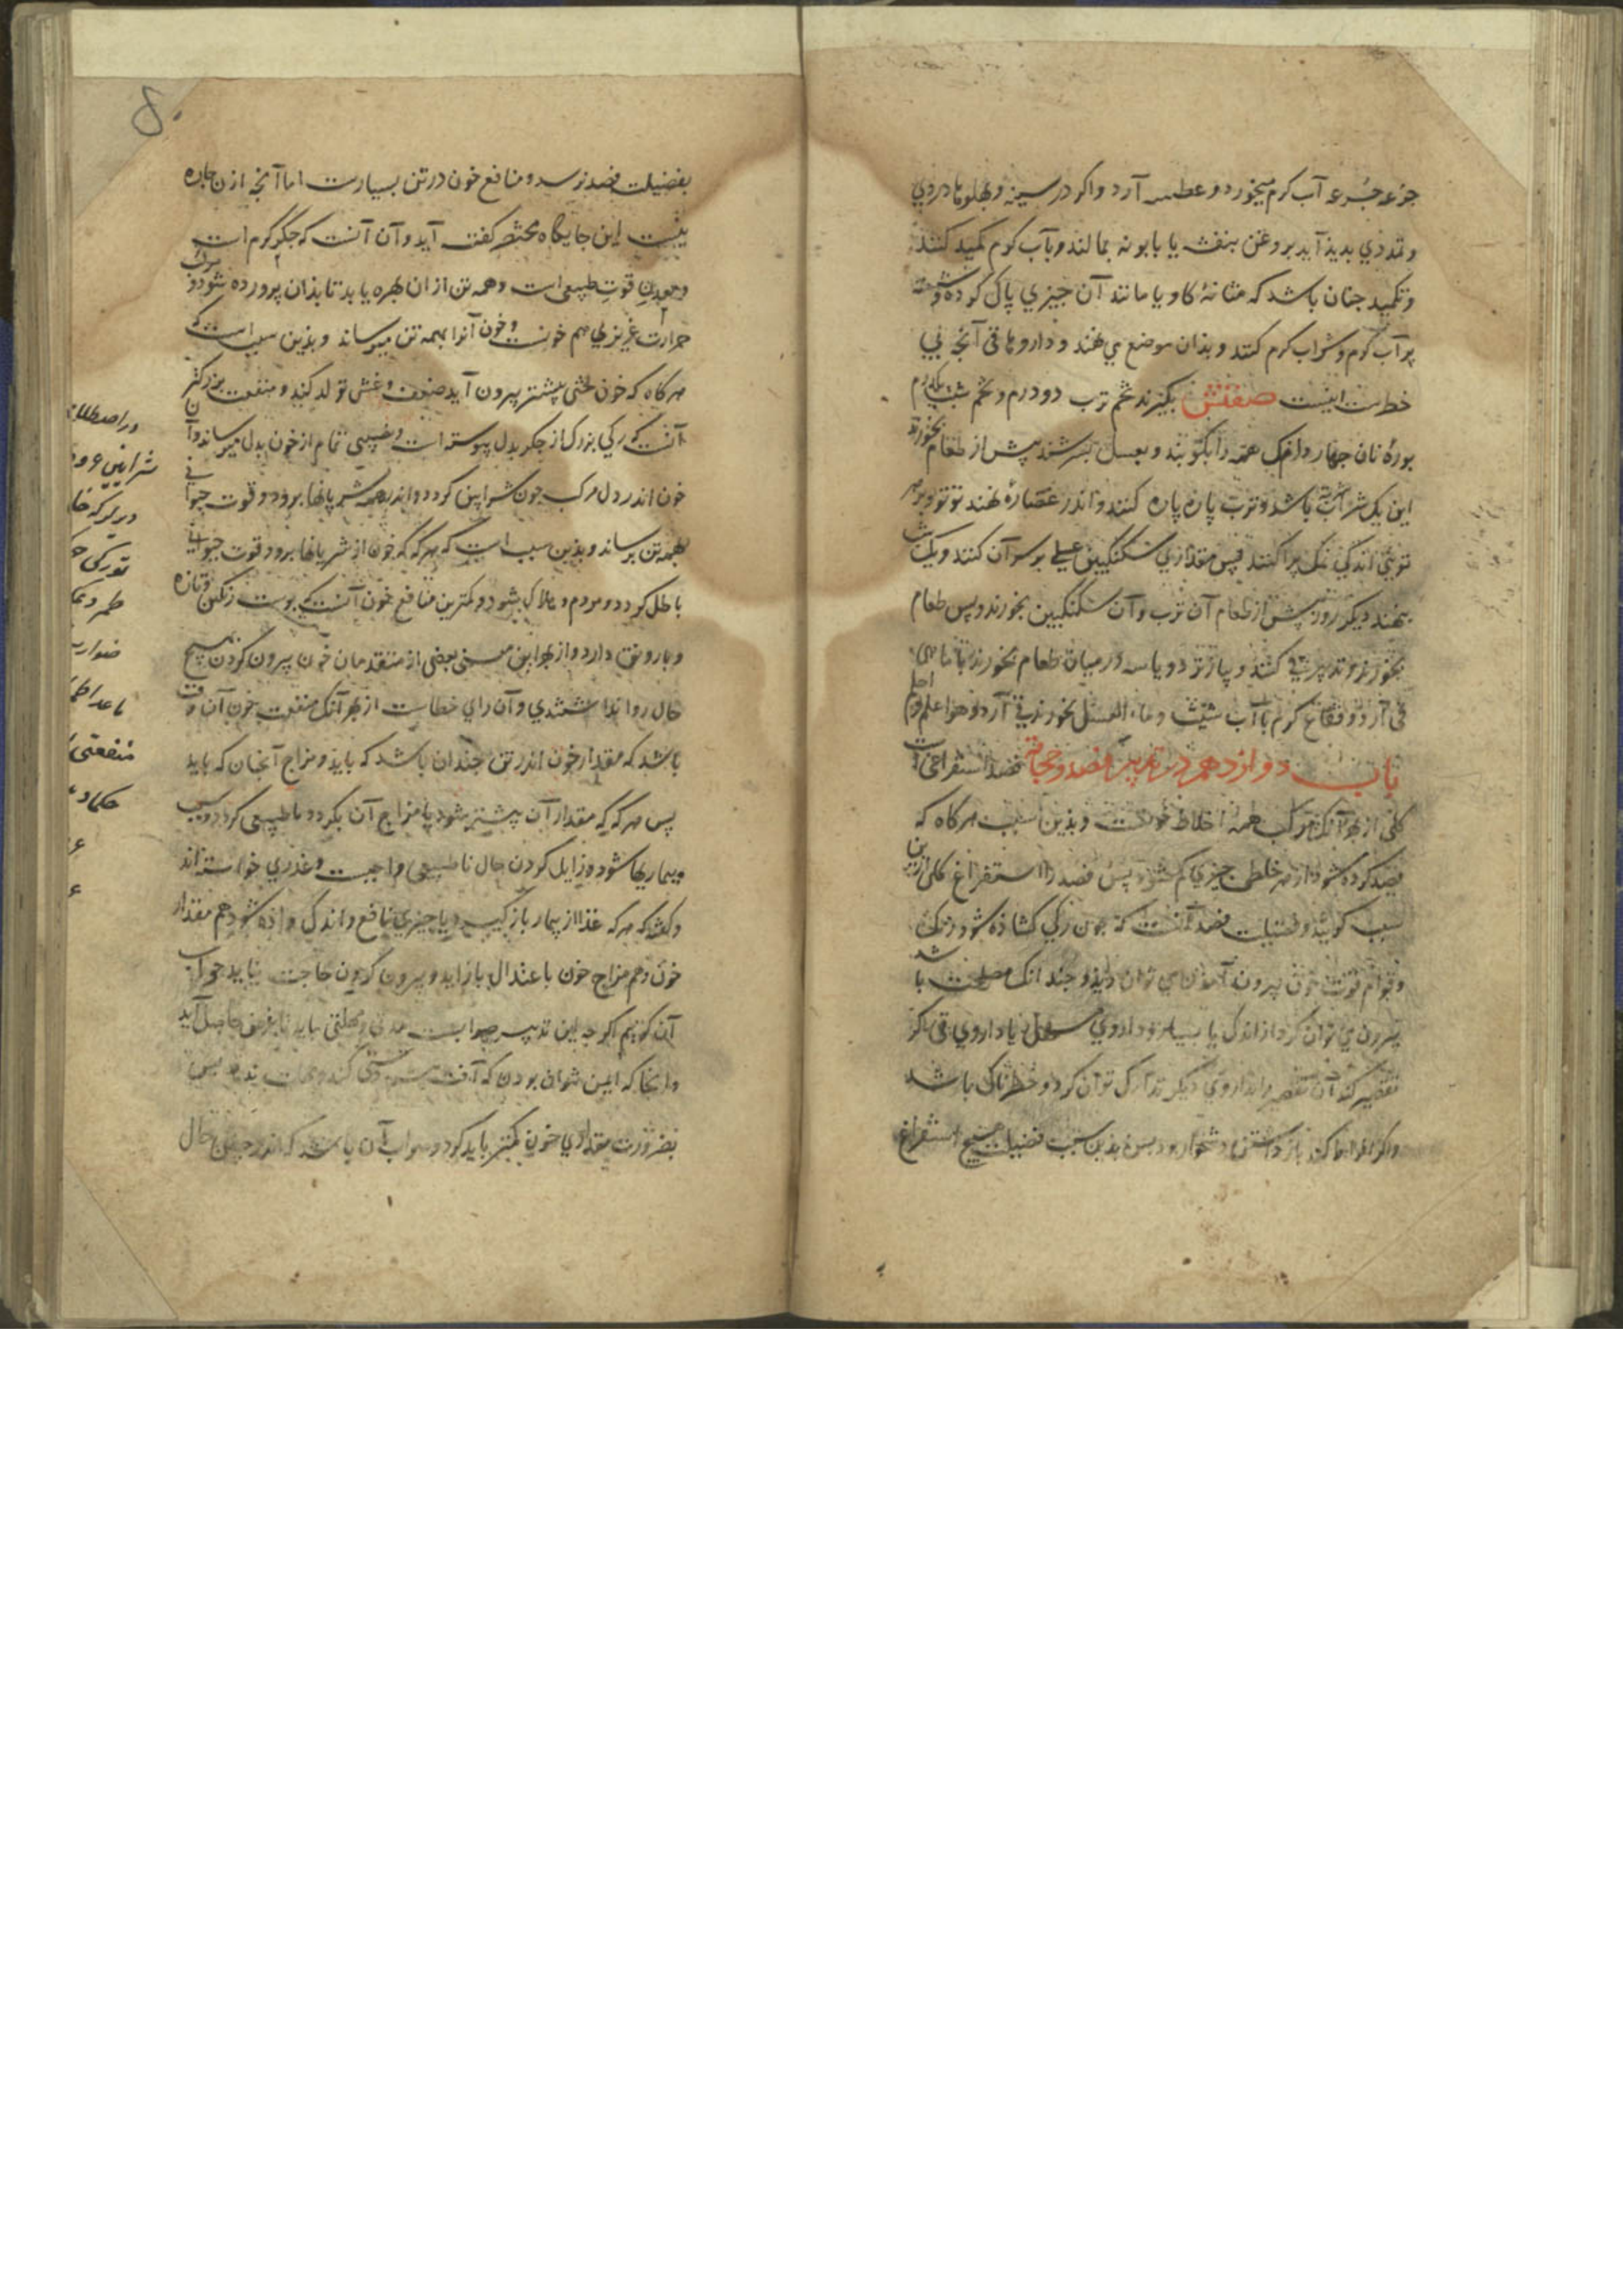 جرعه جرعه آب کرم میخورد و عطسه آرد و اکر در سینه و بهلوها دردی
و تمددی بدیذ آید بروغن بنفشه یا بابونه بمالند و بآب کرم تکمید کنند
و تکمید جنان باشد که مثانهٔ کاو یا مانند آن جیزی پاک کرده و شسته
پر آب کرم و شراب کرم کنند و بذان موضع می نهند و داروهاء قی آنجه بی
خطرست اینست صفتش بکیرند تخم ترب دو درم و تخم شبت یکدرم
بورهٔ نان جهار دانک همه را بکوبند و بعسل بسرشند پیش از طعام بخورند
این یک شربت باشد و ترب پاره پاره کنند و اندر غضارهٔ نهند توتو بر هر
تویی اندکی نمک پراکنند پس مقداری سکنکبین عسلی بر سر آن کنند و یک شب
بنهند دیکر روز پیش از طعام آن ترب و آن سکنکبین بخورند و پس طعام
بخورند و تدبیر قی کنند و پیاز تر دو یا سه در میان طعام بخورند با ماهی
قی آرد و فقاع کرم با آب شبت و ماء العسل بخورند قی آرد و هو اعلم و احکم
باب دوازدهم در تدبیر فصد و حجامة فصد استفراغی است
کلی از بهر آنک مرکب همه اخلاط خونست و بذین سبب هرکاه که
فصد کرده شود از هر خلطی جیزی کم شود پس فصد را استفراغ کلی ازین
سبب کویند و فضیلت فصد آنست که جون رکی کشاذه شود رنک
و قوام قوت خون بیرون آمدن می توان دید و جندانک مصلحت باشد
بیرون می توان کرد از اندک یا بسیار و داروی مسهل یا داروی قی اکر
تقصیر کند آن تقصیر را بداروی دیکر تدارک توان کرد و خطرناک باشد
و اکر افراط کند باز داشتن دشخوار بود پس بذین سبب فضیلت هیچ استفراغ
بفضیلت فصد نرسد و منافع خون در تن بسیارست اما آنجه ازن جاره
نیست این جایکاه مختصر کفته آید و آن آنست که جکر کرم است
و معدن قوت طبیعی است و همه تن از ان بهره یابد تا بذان پرورده شود و
حرارت غریزی هم خونست و خون آنرا بهمه تن میرساند و بذین سبب است که
هرکاه که خون لختی بیشتر بیرون آید ضعف و غشی تولد کند و منفعت بزرکتر
آنست که رکی بزرک از جکر بدل پیوسته است و نصیبی تمام از خون بدل میرساند و آن
خون اندر دل مرکب جون شرایین کردد و اندر همه شریانها برود و قوت حیوانی
بهمه تن برساند و بذین سبب است که هرکه که خون از شریانها برود قوت حیوانی
باطل کردد و مردم هلاک شود و کمترین منافع خون آنست که پوست رنکین و تازه
و با رونق دارد و از بهر این معنی بعضی از متقدمان خون بیرون کردن بهیچ
حال روا نداشتندی و آن رای خطاست از بهر آنک منفعت خون آن وقت
باشد که مقدار خون اندر تن جندان باشد که بایذ و مزاج آنجنان که باید
پس هرکه که مقدار آن بیشتر شود یا مزاج آن بکردد ناطبیعی کردد و سبب
بیماریها شود و زایل کردن حال ناطبیعی واجبست و عذری خواسته اند
و کفته که هرکه غذا از بیمار باز کیرند یا جیزی نافع و اندک داذه شود هم مقدار
خون و هم مزاج خون باعتدال باز آید و بیرون کردن حاجت نیاید جواب
آن کوییم اکر جه این تدبیر صوابست مدتی و مهلتی باید تا غرض حاصل آید
و آنجا که ایمن نتوان بودن که آفت پیش دستی کند و مهلت ندهد پس
بضرورت مقداری خون کمتر باید کرد و صواب آن باشد که اندر جنین حال
در اصطلاح
شرایین
طمر و
ضوارب
منفعتی
حکماء